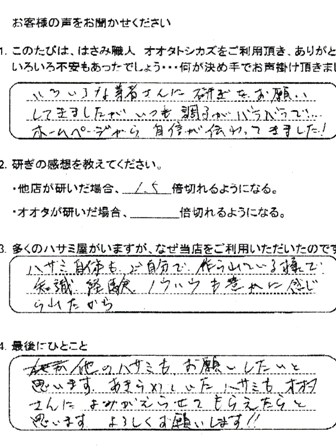 お客様の声をお聞かせください
1. このたびは、はさみ職人 オオタトシカズをご利用頂き、ありがと
いろいろ不安もあったでしょう・・・何が決め手でお声掛け頂きまし
いろいろな業者さんに研ぎをお願い
してきましたが いつも調子がバラバラで…
ホームページから自信が伝わってきました!
2. 研ぎの感想を教えてください。
・他店が研いだ場合、 1.5 倍切れるようになる。
・オオタが研いだ場合、 倍切れるようになる。
3. 多くのハサミ屋がいますが、なぜ当店をご利用いただいたのです
ハサミ自体も ご自分で 作られている様で
知識 経験 ノウハウも豊かに感じ
られたから
4. 最後にひとこと
他のハサミも お願いしたいと
思います あきらめていた ハサミも オオタ
さんに よみがえらせて もらえたらと
思います よろしくお願いします!!